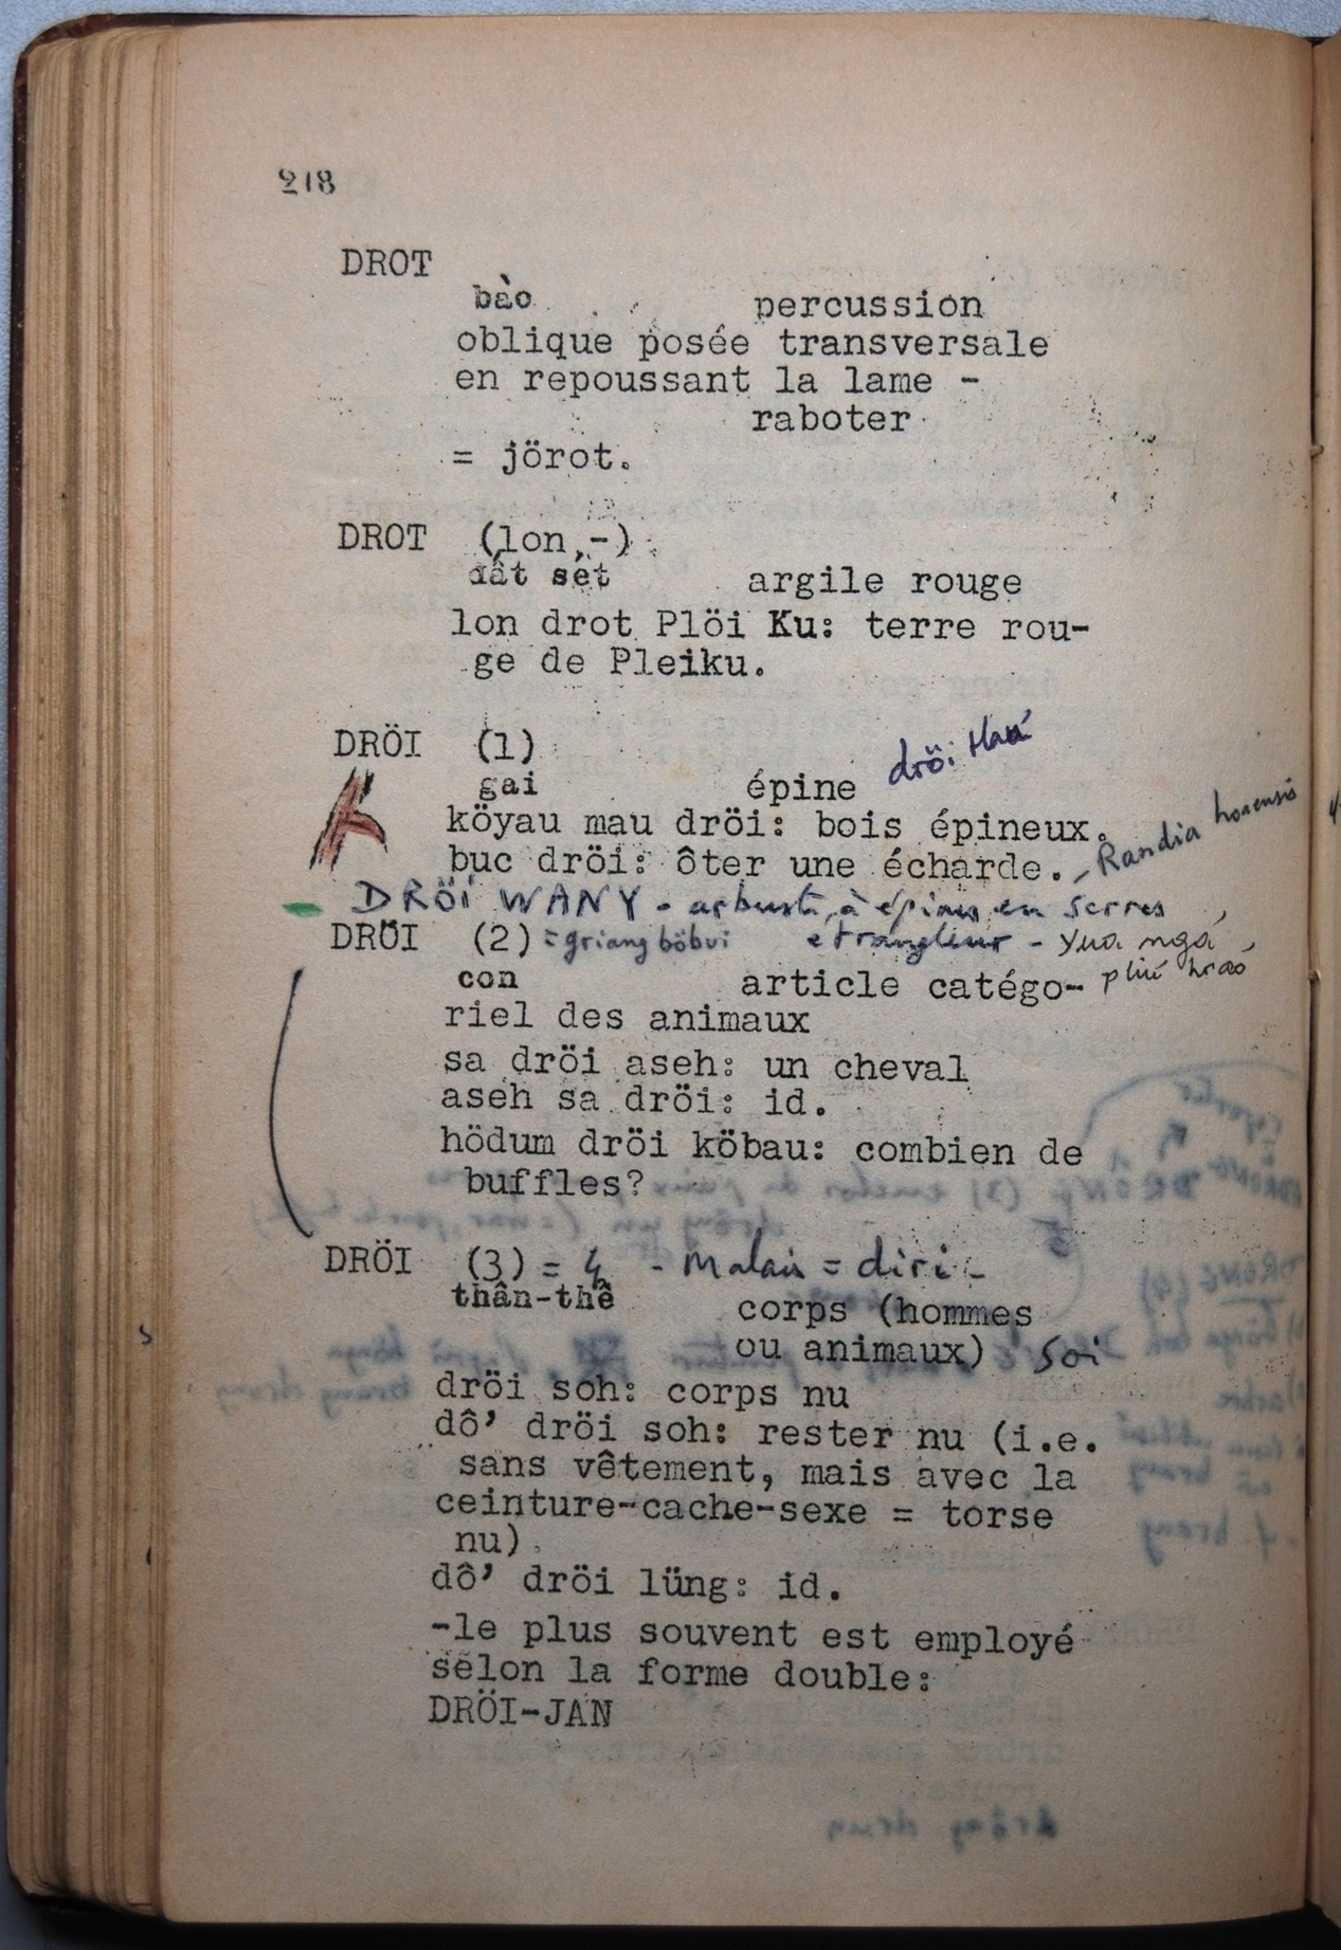 218
DROT
bào percussion
oblique posée transversale
en repoussant la lame -
raboter
= jörot.
DROT (lon,-)
đất sét argile rouge
lon drot Plöi Ku: terre rou-
ge de Pleiku.
DRÖI (1)
dröi
gai épine
köyau mau dröi: bois épineux.
buc dröi: ôter une écharde. - Randia
- DRÖI WANY - arbuste à épines en serres
DRÖI (2) = griang böbui etrangleur - yua ngá,
con article catégo-
riel des animaux
sa dröi aseh: un cheval
aseh sa dröi: id.
hödum dröi köbau: combien de
buffles?
DRÖI (3) = 4 - Malais = diri -
thân-thể corps (hommes
ou animaux) soi
dröi soh: corps nu
dô' dröi soh: rester nu (i.e.
sans vêtement, mais avec la
ceinture-cache-sexe = torse
nu).
dô' dröi lüng: id.
-le plus souvent est employé
selon la forme double:
DRÖI-JAN